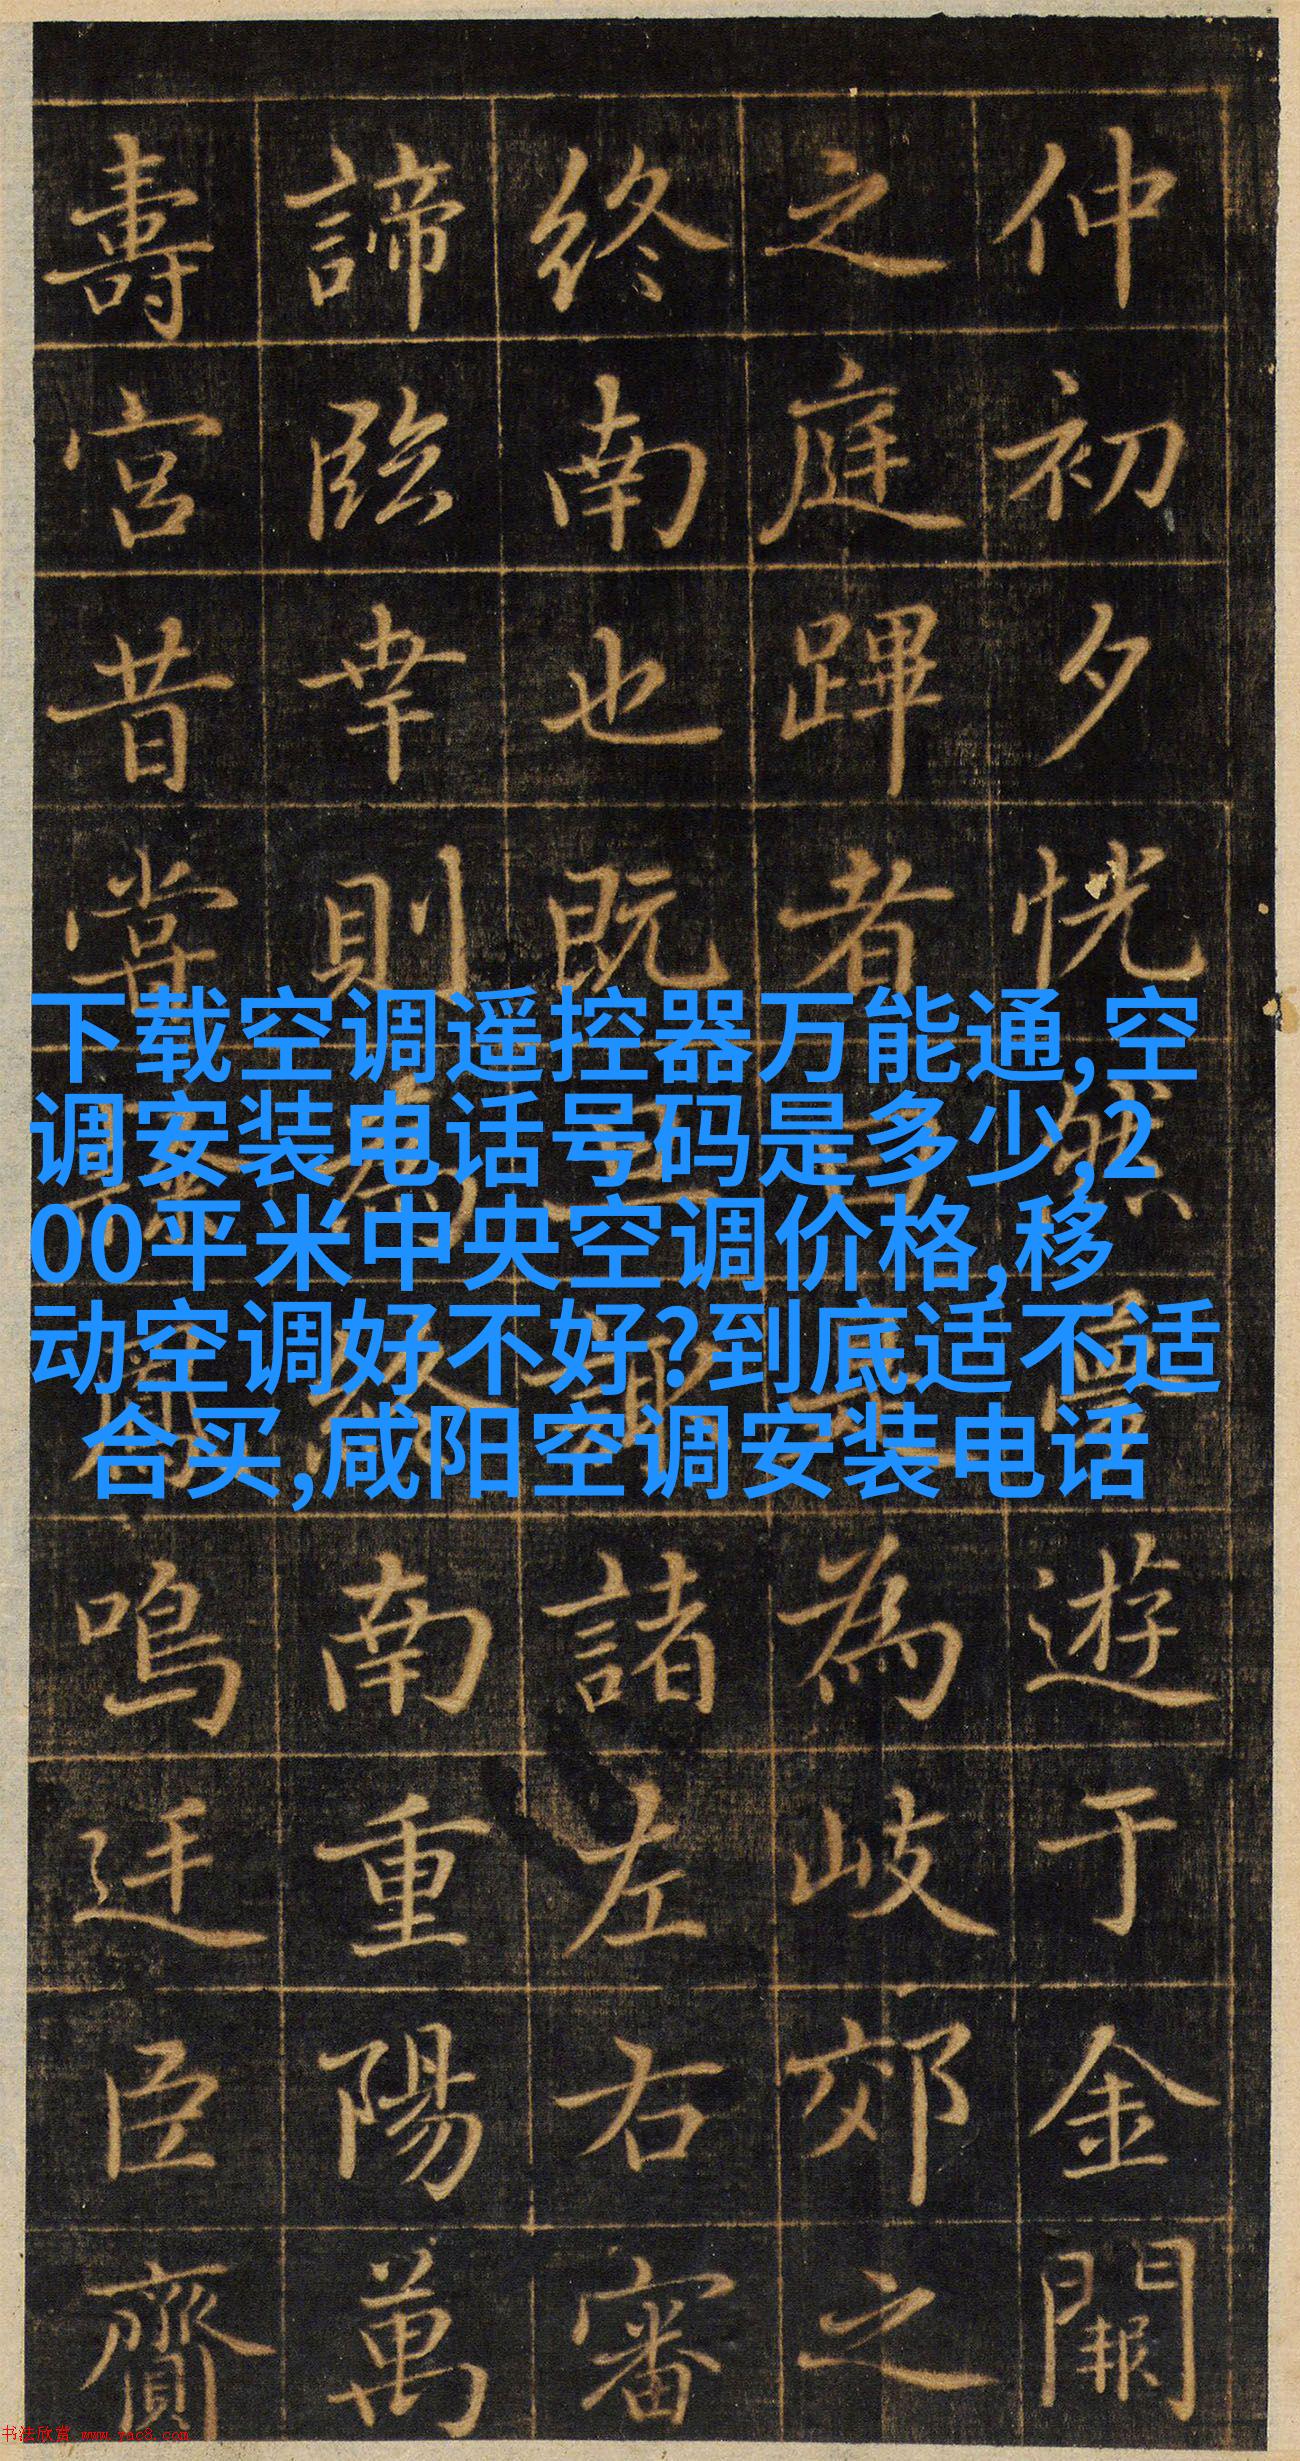 仲初夕恍然遊于金闕
之庭蹕者為岐郊之
終南也既諸左右審
諦臨幸則為終南重陽萬
壽宮昔嘗鳴迋臣齎
下载空调遥控器万能通,空
调安装电话号码是多少,2
00平米中央空调价格,移
动空调好不好?到底适不适
合买,咸阳空调安装电话
书法欣赏 www.yac8.com